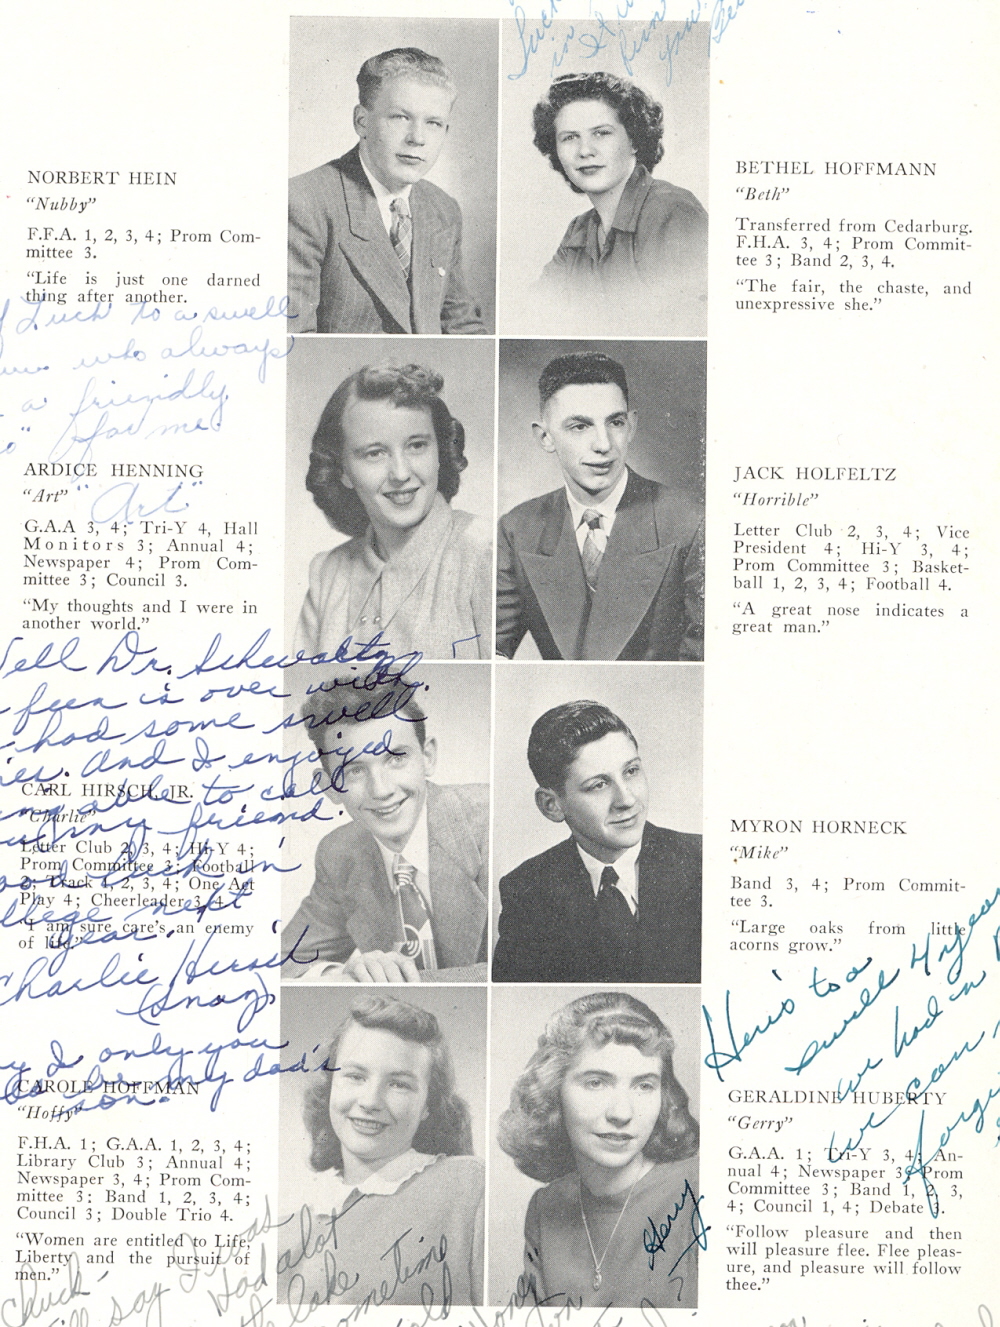 Luck
in
from
you
NORBERT HEIN
"Nubby"
F.F.A. 1, 2, 3, 4; Prom Com-
mittee 3.
"Life is just one darned
thing after another.
Luck to a swell
who always
a friendly
for me.
"Art"
ARDICE HENNING
"Art"
G.A.A 3, 4; Tri-Y 4, Hall
Monitors 3; Annual 4;
Newspaper 4; Prom Com-
mittee 3; Council 3.
"My thoughts and I were in
another world."
Well Dr. Schwaltz
is over with.
had some swell
And I enjoyed
able to call
my friend.
Luck in
next
year.
Charlie Hirsch
(Snag)
CARL HIRSCH, JR.
"Charlie"
Letter Club 2, 3, 4; Hi-Y 4;
Prom Committee 3; Football
2; Track 1, 2, 3, 4; One Act
Play 4; Cheerleader 3, 4
"I am sure care's an enemy
of life."
I only you
my dad's
son.
CAROLE HOFFMAN
"Hoffy"
F.H.A. 1; G.A.A. 1, 2, 3, 4;
Library Club 3; Annual 4;
Newspaper 3, 4; Prom Com-
mittee 3; Band 1, 2, 3, 4;
Council 3; Double Trio 4.
"Women are entitled to Life,
Liberty and the pursuit of
men."
Chuck-
say I was
had a lot
lake
sometime
BETHEL HOFFMANN
"Beth"
Transferred from Cedarburg.
F.H.A. 3, 4; Prom Commit-
tee 3; Band 2, 3, 4.
"The fair, the chaste, and
unexpressive she."
JACK HOLFELTZ
"Horrible"
Letter Club 2, 3, 4; Vice
President 4; Hi-Y 3, 4;
Prom Committee 3; Basket-
ball 1, 2, 3, 4; Football 4.
"A great nose indicates a
great man."
MYRON HORNECK
"Mike"
Band 3, 4; Prom Commit-
tee 3.
"Large oaks from little
acorns grow."
Here's to a
swell 4 years
we had in
we can
Gerry
GERALDINE HUBERTY
"Gerry"
G.A.A. 1; Tri-Y 3, 4; An-
nual 4; Newspaper 3; Prom
Committee 3; Band 1, 2, 3,
4; Council 1, 4; Debate 3.
"Follow pleasure and then
will pleasure flee. Flee pleas-
ure, and pleasure will follow
thee."